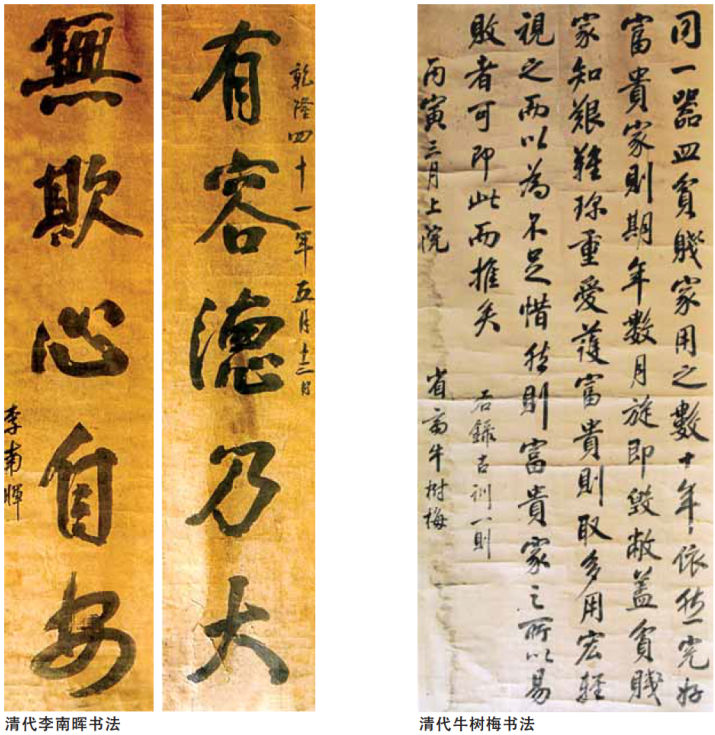 乾隆四十一年五月十三日
有容德乃大
無欺心自安
李南暉
清代李南晖书法
同一器皿貧賤家用之數十年依然完好
富貴家則期年數月旋即毀敝蓋貧賤
家知艱難珍重愛護富貴則取多用宏輕
視之而以為不足惜然則富貴家之所以易
敗者可即此而推矣
右錄古訓一則
丙寅三月上浣
省齋牛樹梅
清代牛树梅书法